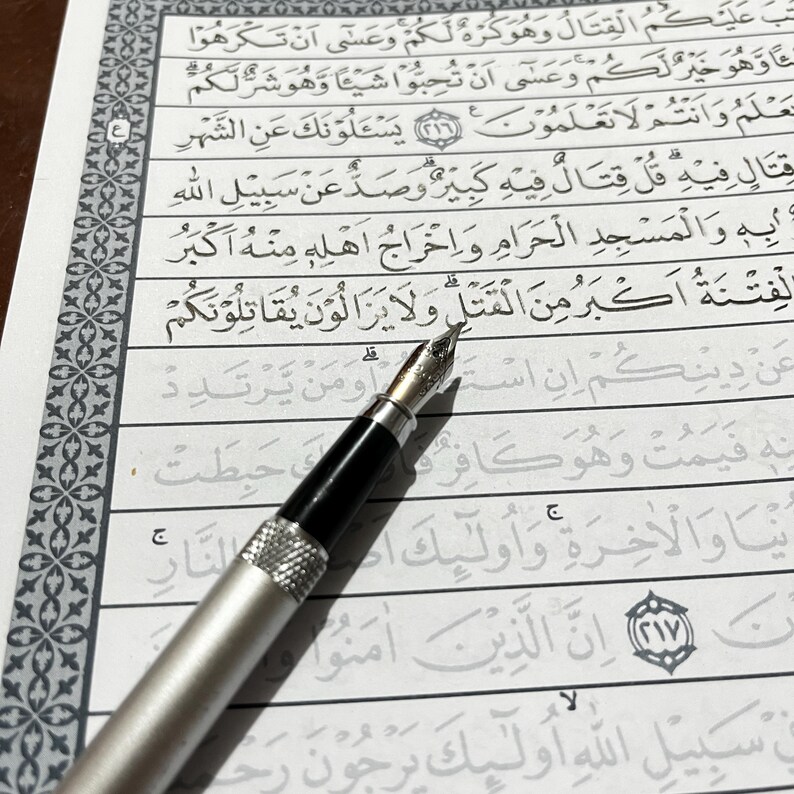 عَلَيْكُمُ الْقِتَالُ وَهُوَ كُرْهٌ لَّكُمْ ۚ وَعَسٰٓى اَنْ تَكْرَهُوْا
وَّهُوَ خَيْرٌ لَّكُمْ ۚ وَعَسٰٓى اَنْ تُحِبُّوْا شَيْـًٔا وَّهُوَ شَرٌّ لَّكُمْ ۗ
وَاَنْتُمْ لَا تَعْلَمُوْنَ ࣖ ٢١٦ يَسْـَٔلُوْنَكَ عَنِ الشَّهْرِ
قِتَالٍ فِيْهِ ۗ قُلْ قِتَالٌ فِيْهِ كَبِيْرٌ ۗ وَصَدٌّ عَنْ سَبِيْلِ اللّٰهِ
بِهٖ وَالْمَسْجِدِ الْحَرَامِ وَاِخْرَاجُ اَهْلِهٖ مِنْهُ اَكْبَرُ
الْفِتْنَةُ اَكْبَرُ مِنَ الْقَتْلِ ۗ وَلَا يَزَالُوْنَ يُقَاتِلُوْنَكُمْ
عَنْ دِيْنِكُمْ اِنِ وَمَنْ يَّرْتَدِدْ
فَيَمُتْ وَهُوَ كَافِرٌ حَبِطَتْ
وَالْاٰخِرَةِ ۚ وَاُولٰۤىِٕكَ النَّارِ ۚ
٢١٧ اِنَّ الَّذِيْنَ اٰمَنُوْا
سَبِيْلِ اللّٰهِ ۙ اُولٰۤىِٕكَ يَرْجُوْنَ
ع